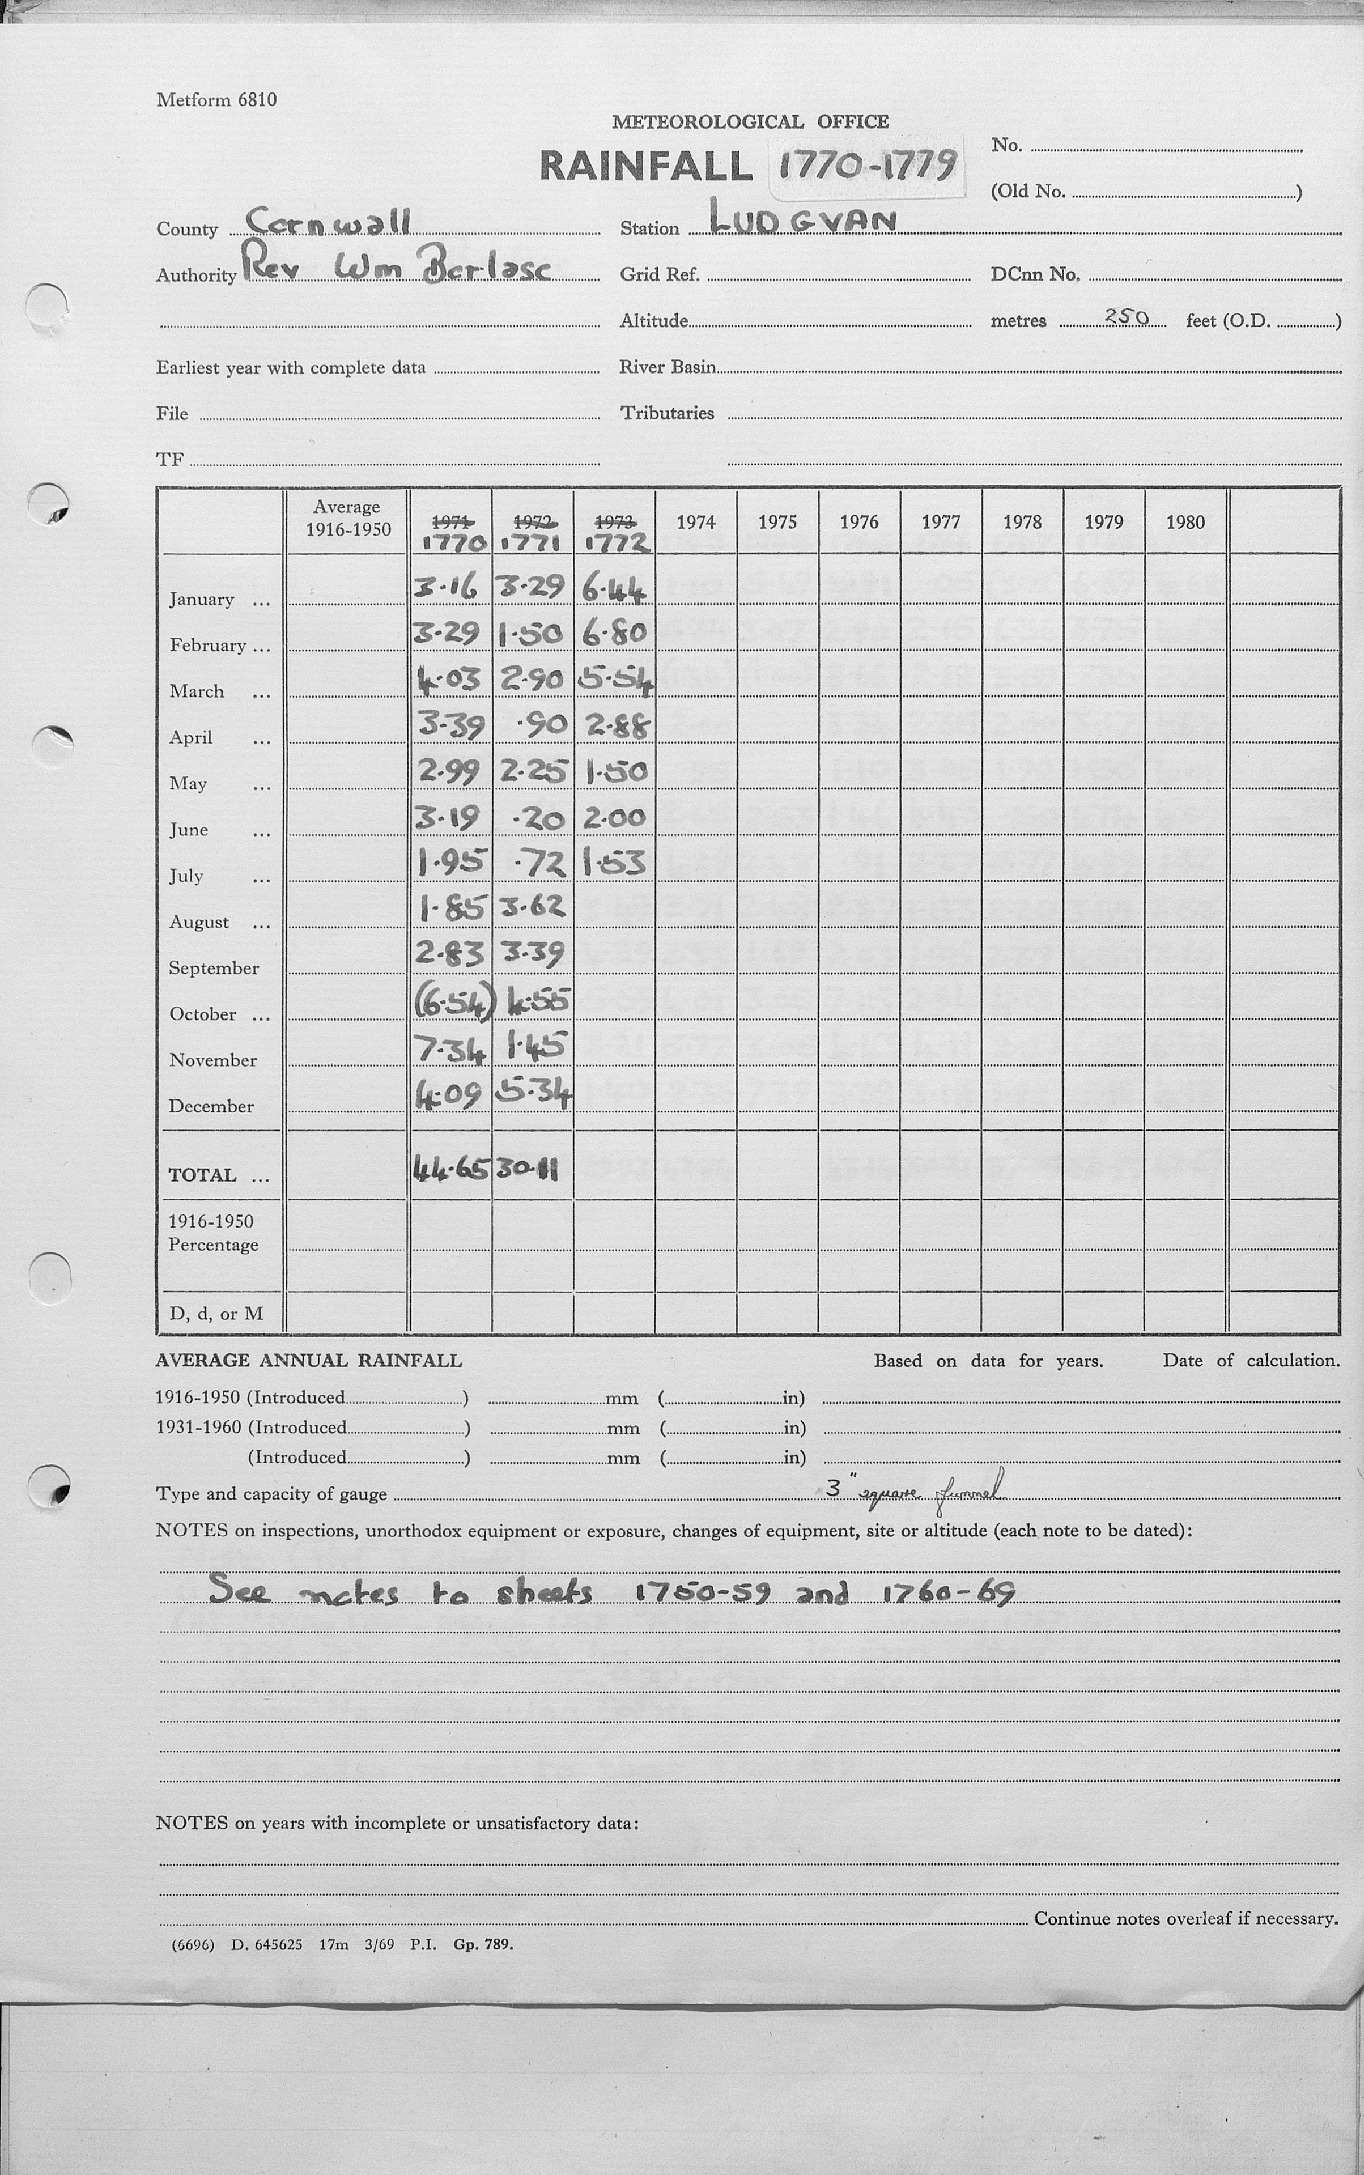 Metform 6810
METEOROLOGICAL OFFICE
RAINFALL 1770-1779
No.
(Old No. )
County Cornwall Station LUDGVAN
Authority Rev Wm Borlase Grid Ref. DCnn No.
Altitude metres 250 feet (O.D. )
Earliest year with complete data River Basin
File Tributaries
TF
Average 1916-1950 1971 1972 1973 1974 1975 1976 1977 1978 1979 1980
1770 1771 1772
January ... 3.16 3.29 6.44
February ... 3.29 1.50 6.80
March ... 4.03 2.90 5.54
April ... 3.39 .90 2.88
May ... 2.99 2.25 1.50
June ... 3.19 .20 2.00
July ... 1.95 .72 1.53
August ... 1.85 3.62
September 2.83 3.39
October ... (6.54) 4.55
November 7.34 1.45
December 4.09 5.34
TOTAL ... 44.65 30.11
1916-1950
Percentage
D, d, or M
AVERAGE ANNUAL RAINFALL Based on data for years. Date of calculation.
1916-1950 (Introduced ) mm ( in)
1931-1960 (Introduced ) mm ( in)
(Introduced ) mm ( in)
Type and capacity of gauge 3" square funnel
NOTES on inspections, unorthodox equipment or exposure, changes of equipment, site or altitude (each note to be dated):
See notes to sheets 1750-59 and 1760-69
NOTES on years with incomplete or unsatisfactory data:
Continue notes overleaf if necessary.
(6696) D. 645625 17m 3/69 P.I. Gp. 789.